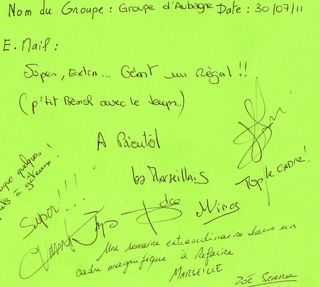 Nom du Groupe : Groupe d'Aubagne Date : 30/07/11
E. Mail :
Super, Extra... Géant un Régal !!
(p'tit Bémol avec le temps..)
A Bientôt
les Marseillais
Top le cadre !
Super !!!
Minos
Une semaine extraordinaire dans un
cadre magnifique à Refaire
MARSEILLE
Zoé